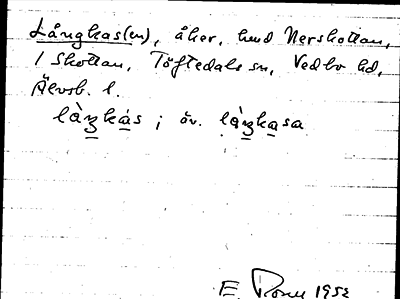 Långkas(en), åker, hmd Nerskottan,
1 Skottan, Töftedals sn, Vedbo hd,
Älvsb. l.
làŋkás ; äv. làŋkasa
E. 1952